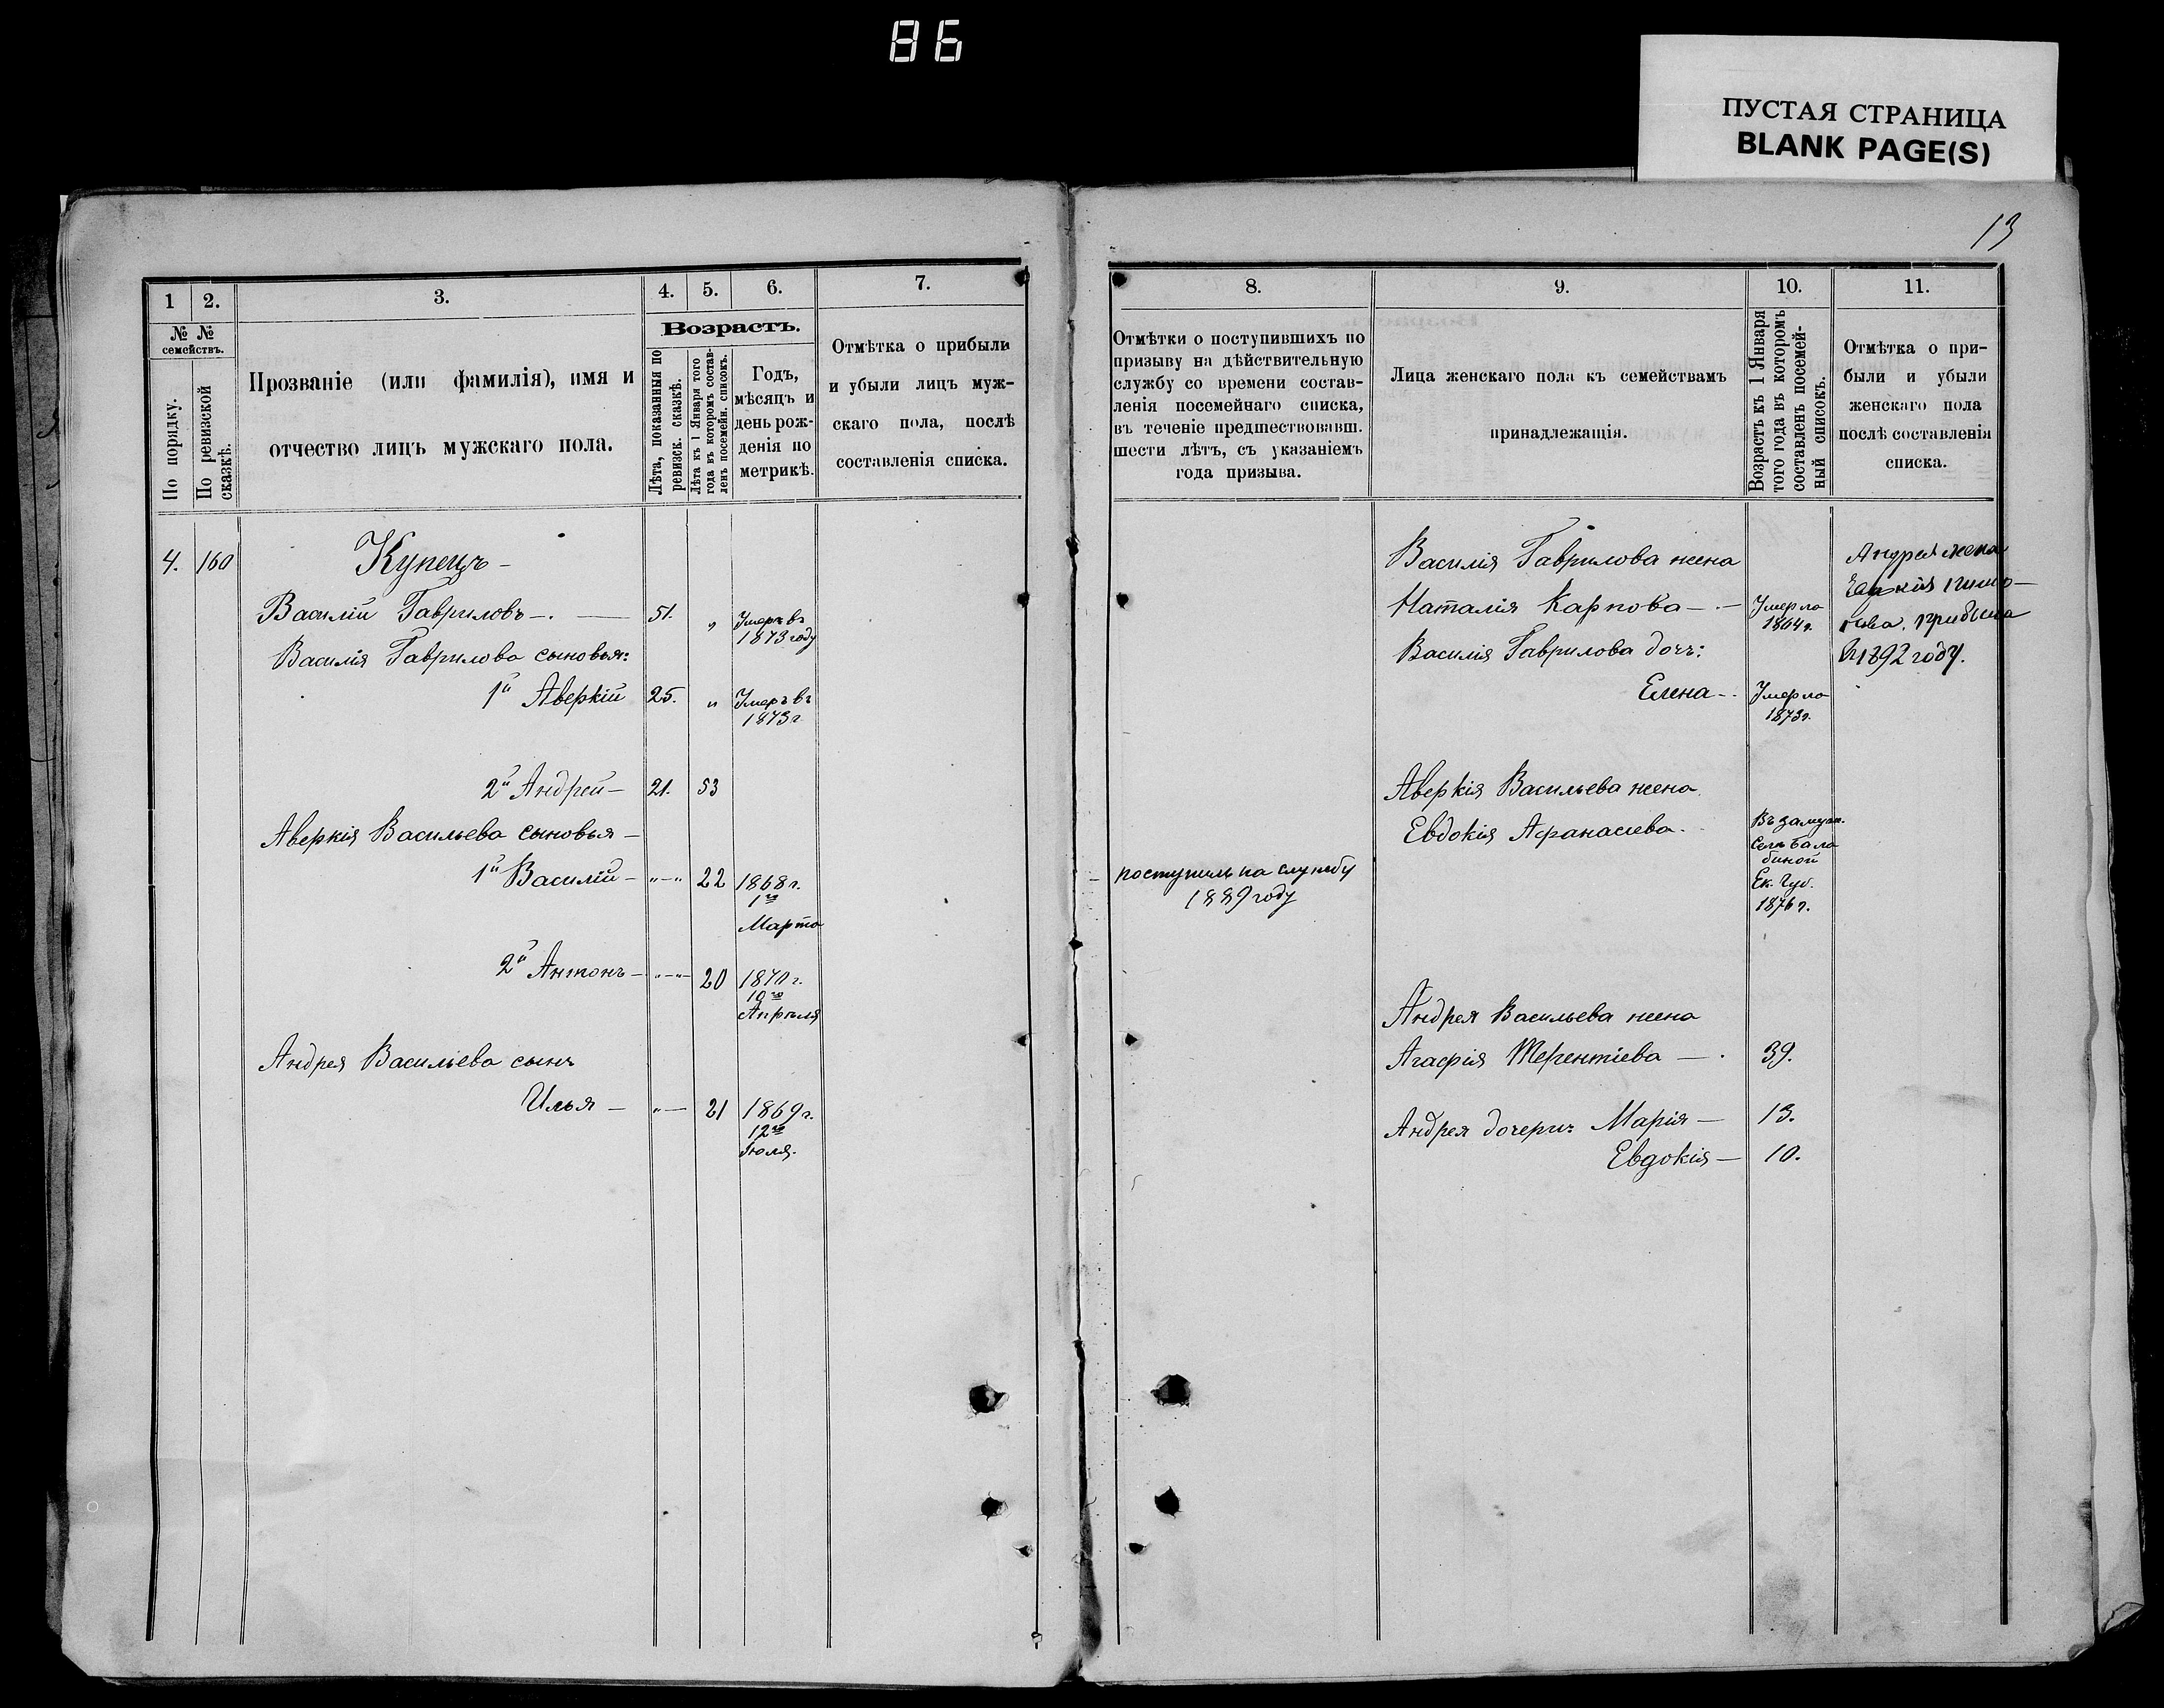 86
ПУСТАЯ СТРАНИЦА
BLANK PAGE(S)
13
1 2. 3. 4. 5. 6. 7.
№ №
семействъ.
По порядку.
По ревизской
сказкѣ.
Прозваніе (или фамилія), имя и
отчество лицъ мужскаго пола.
Возрастъ.
Лѣта, показанныя по
ревизск. сказкѣ.
Лѣта къ 1 Января того
года въ которомъ состав-
ленъ посемейн. списокъ.
Годъ,
мѣсяцъ и
день рож-
денія по
метрикѣ.
Отмѣтка о прибыли
и убыли лицъ муж-
скаго пола, послѣ
составленія списка.
4. 160 Купецъ
Василій Гавриловъ 51. " Умеръ въ
1873 году
Василія Гаврилова сыновья:
1й Аверкій 25. " Умеръ въ
1873 г.
2й Андрей 21. 53
Аверкія Васильева сыновья
1й Василій "-" 22 1868 г.
1го
Марта
2й Антонъ "-" 20 1870 г.
10го
Апрѣля
Андрея Васильева сынъ
Илья "- 21 1869 г.
12го
Іюля.
8. 9. 10. 11.
Отмѣтки о поступившихъ по
призыву на дѣйствительную
службу со времени состав-
ленія посемейнаго списка,
въ теченіе предшествовавш.
шести лѣтъ, съ указаніемъ
года призыва.
Лица женскаго пола къ семействамъ
принадлежащія.
Возрастъ къ 1 Января
того года въ которомъ
составленъ посемей-
ный списокъ.
Отмѣтка о при-
были и убыли
женскаго пола
послѣ составленія
списка.
Василія Гаврилова жена
Наталія Карпова Умерла
1864 г.
Василія Гаврилова дочь:
Елена Умерла
1873 г.
Андрея жена
прибыла
въ 1892 году.
Аверкія Васильева жена
Евдокія Афанасиева Въ замуж.
Селѣ Бала
биной
Ек. Губ.
1876 г.
поступилъ на службу
1889 году
Андрея Васильева жена
Агафія Терентіева 39.
Андрея дочери: Марія 13.
Евдокія 10.